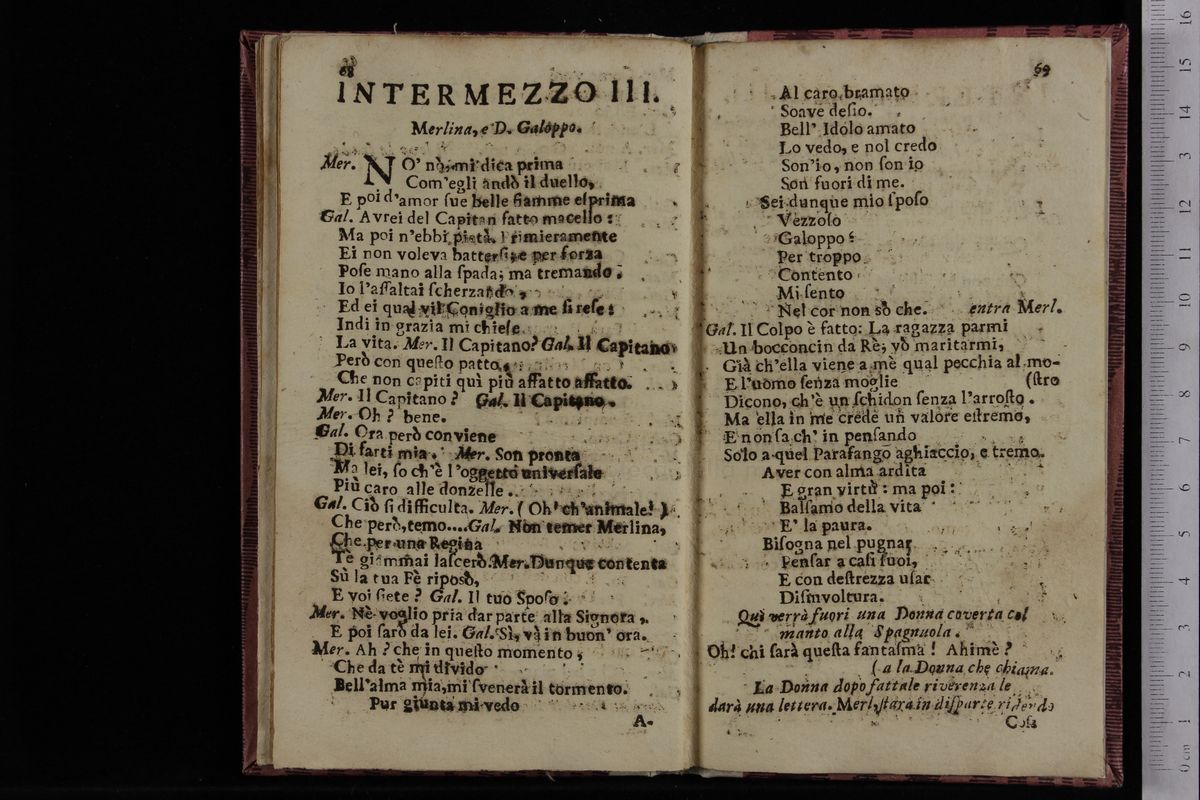 68
INTERMEZZO III.
Merlina, e D. Galoppo.
Mer. NO' nò, mi dica prima
Com'egli andò il duello,
E poi d'amor ſue belle fiamme eſprima
Gal. Avrei del Capitan fatto macello:
Ma poi n'ebbi pietà. Primieramente
Ei non voleva batterſi, e per forza
Poſe mano alla ſpada; ma tremando.
Io l'aſſaltai ſcherzando,
Ed ei qual vil Coniglio a me ſi reſe:
Indi in grazia mi chieſe
La vita. Mer. Il Capitano? Gal. Il Capitano
Però con queſto patto,
Che non capiti quì più affatto affatto.
Mer. Il Capitano? Gal. Il Capitano.
Mer. Oh? bene.
Gal. Ora però conviene
Di farti mia. Mer. Son pronta
Ma lei, ſo ch'è l'oggetto univerſale
Più caro alle donzelle.
Gal. Ciò ſi difficulta. Mer. (Oh' ch'animale!)
Che però, temo.... Gal. Non temer Merlina,
Che per una Regina
Tè giammai laſcerò. Mer. Dunque contenta
Sù la tua Fè riposò,
E voi ſiete? Gal. Il tuo Spoſo.
Mer. Nè voglio pria dar parte alla Signora,
E poi ſarò da lei. Gal. Sì, và in buon' ora.
Mer. Ah? che in queſto momento,
Che da tè mi divido
Bell'alma mia, mi ſvenerà il tormento.
Pur giunta mi vedo
A-
69
Al caro bramato
Soave deſio.
Bell' Idolo amato
Lo vedo, e nol credo
Son'io, non ſon io
Son fuori di me.
Sei dunque mio ſpoſo
Vezzoſo
Galoppo?
Per troppo
Contento
Mi ſento
Nel cor non sò che. entra Merl.
Gal. Il Colpo è fatto: La ragazza parmi
Un bocconcin da Rè; vò maritarmi,
Già ch'ella viene a mè qual pecchia al mo-
E l'uomo ſenza moglie (ſtro
Dicono, ch'è un ſchidon ſenza l'arroſto.
Ma ella in me crede un valore eſtremo,
E non ſa ch' in penſando
Solo a quel Parafango aghiaccio, e tremo.
Aver con alma ardita
E gran virtù: ma poi:
Balſamo della vita
E' la paura.
Biſogna nel pugnar
Penſar a caſi ſuoi,
E con deſtrezza uſar
Diſinvoltura.
Quì verrà fuori una Donna coverta col
manto alla Spagnuola.
Oh! chi ſarà queſta fantaſma! Ahimè?
(a la Donna che chiama.
La Donna dopo fattale riverenza le
darà una lettera. Merl. ſtarà in diſparte ridendo
Coſa